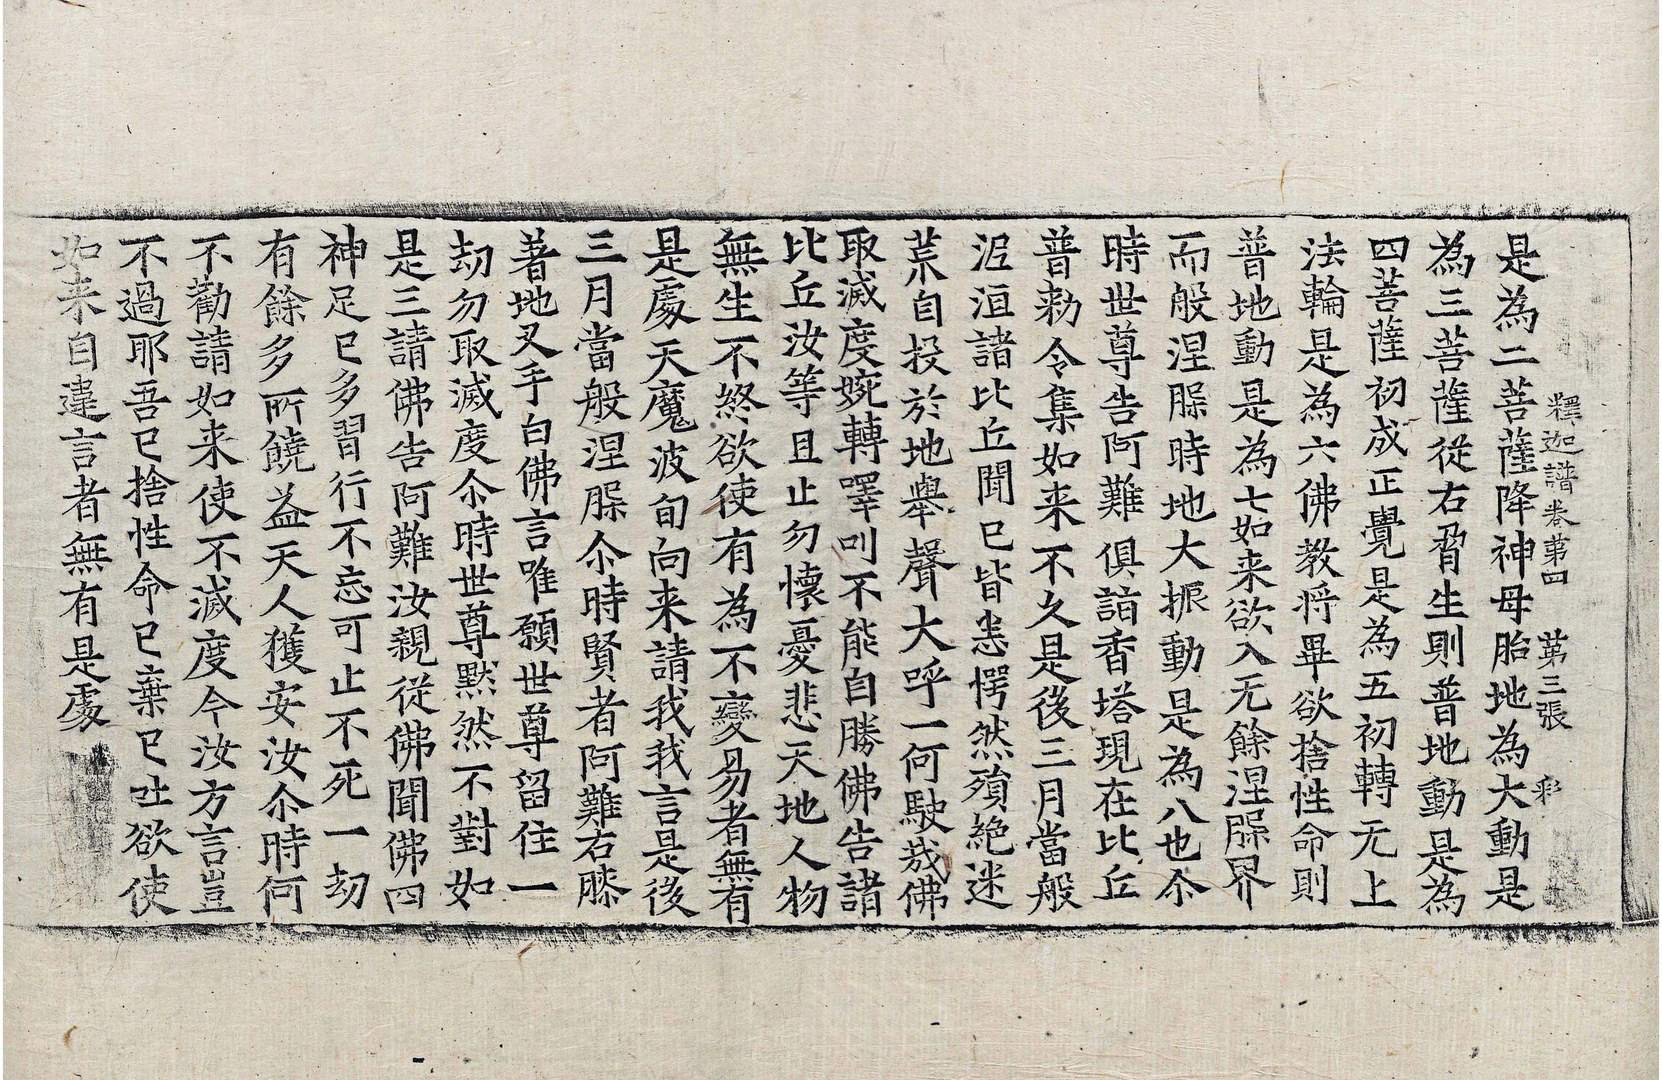 釋迦譜卷第四 第三張 彩
是為二菩薩降神母胎地為大動是
為三菩薩從右脅生則普地動是為
四菩薩初成正覺是為五初轉无上
法輪是為六佛教將畢欲捨性命則
普地動是為七如来欲入无餘涅膒界
而般涅膒時地大振動是為八也尒
時世尊告阿難俱詣香塔現在比丘
普勑令集如来不久是後三月當般
泥洹諸比丘聞已皆恚愕然殞絶迷
荒自投於地舉聲大呼一何駛㢤佛
取滅度婉轉嘷叫不能自勝佛告諸
比丘汝等且止勿懷憂悲天地人物
無生不終欲使有為不變易者無有
是處天魔波旬向来請我我言是後
三月當般涅膒尒時賢者阿難右膝
著地叉手白佛言唯願世尊留住一
劫勿取滅度尒時世尊黙然不對如
是三請佛告阿難汝親從佛聞佛四
神足已多習行不忘可止不死一劫
有餘多所饒益天人獲安汝尒時何
不勸請如来使不滅度今汝方言豈
不過耶吾已捨性命已棄已吐欲使
如来自違言者無有是處